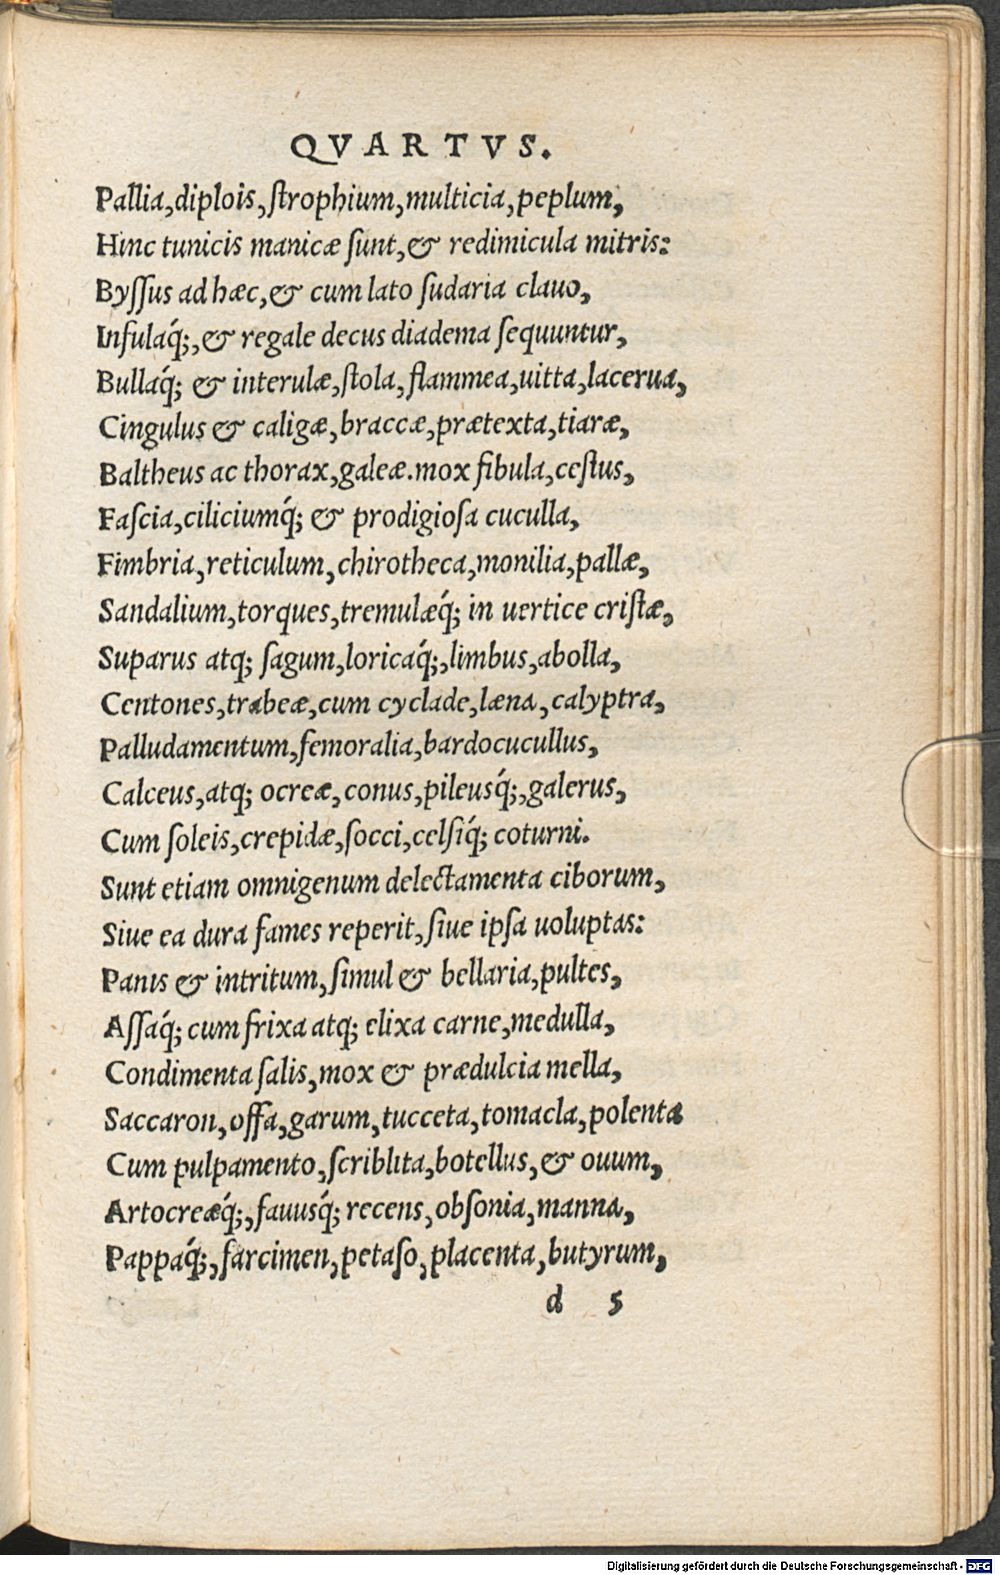 QVARTVS.
Pallia,diplois,ſtrophium,multicia,peplum,
Hinc tunicis manicæ ſunt,& redimicula mitris:
Byſſus ad hæc,& cum lato ſudaria clauo,
Inſulaq́;,& regale decus diadema ſequuntur,
Bullaq́; & interulæ,ſtola,flammea,uitta,lacerua,
Cingulus & caligæ,braccæ,prætexta,tiaræ,
Baltheus ac thorax,galeæ.mox fibula,ceſtus,
Faſcia,ciliciumq́; & prodigioſa cuculla,
Fimbria,reticulum,chirotheca,monilia,pallæ,
Sandalium,torques,tremulæq́; in uertice criſtæ,
Suparus atq; ſagum,loricaq́;,limbus,abolla,
Centones,trabeæ,cum cyclade,læna,calyptra,
Palludamentum,femoralia,bardocucullus,
Calceus,atq; ocreæ,conus,pileusq́;,galerus,
Cum ſoleis,crepidæ,ſocci,celſiq́; coturni.
Sunt etiam omnigenum delectamenta ciborum,
Siue ea dura fames reperit,ſiue ipſa uoluptas:
Panis & intritum,ſimul & bellaria,pultes,
Aſſaq́; cum frixa atq; elixa carne,medulla,
Condimenta ſalis,mox & prædulcia mella,
Saccaron,offa,garum,tucceta,tomacla,polenta
Cum pulpamento,ſcriblita,botellus,& ouum,
Artocreæq́;,fauusq́; recens,obſonia,manna,
Pappaq́;,farcimen,petaſo,placenta,butyrum,
d 5
Digitalisierung gefördert durch die Deutsche Forschungsgemeinschaft - DFG